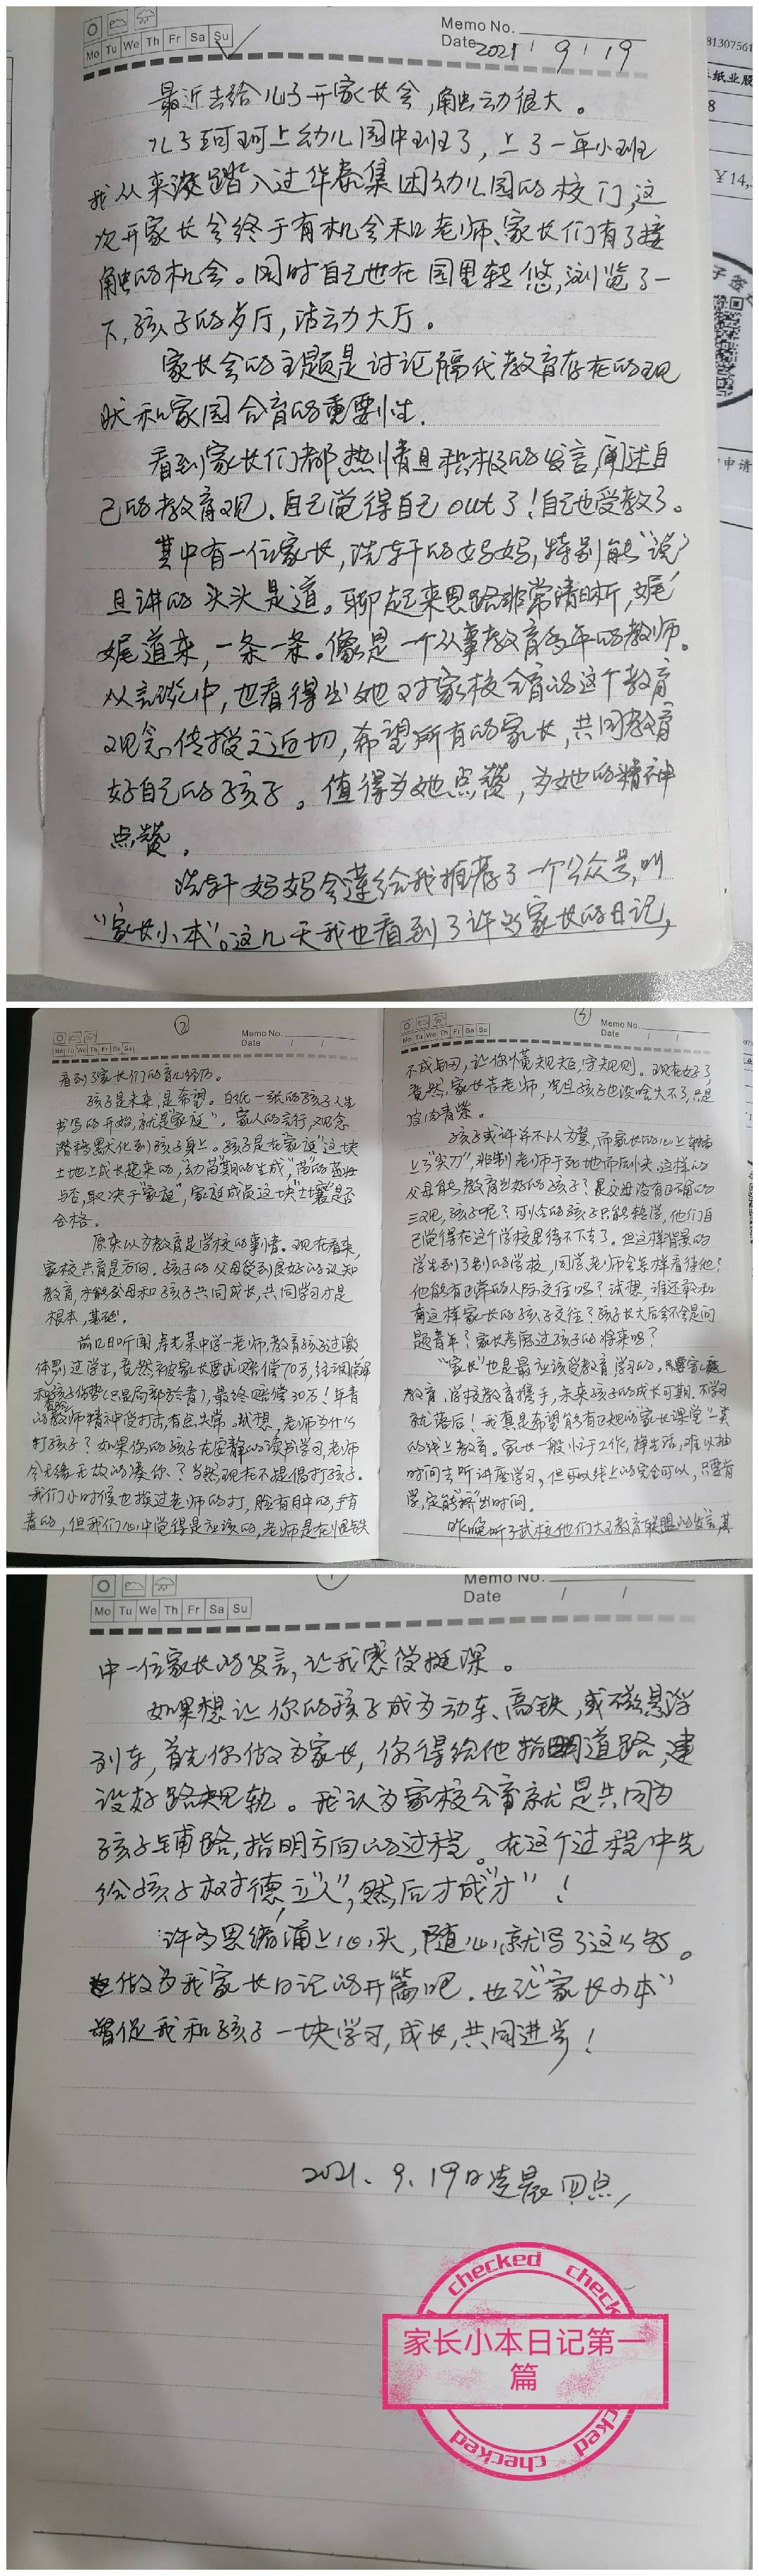 Memo No.
Mo Tu We Th Fr Sa Su
Date 2021 / 9 / 19
最近去给儿子开家长会,触动很大。
儿子珂珂上幼儿园中班了,上了一年小班
我从来没踏入过华泰集团幼儿园的校门,这
次开家长会终于有机会和老师、家长们有了接
触的机会。同时自己也在园里转悠,浏览了一
下,孩子的歺厅,活动大厅。
家长会的主题是讨论隔代教育存在的现
状和家园合育的重要性.
看到家长们都热情且积极的发言,阐述自
己的教育观.自己觉得自己out了!自己也受教了。
其中有一位家长,浩轩的妈妈,特别能"说"
且讲的头头是道。聊起来思路非常清晰,娓
娓道来,一条一条。像是一个从事教育多年的教师。
从言谈中,也看得出她对家校合育的这个教育
观念,传授之迫切,希望所有的家长,共同教育
好自己的孩子。值得为她点赞,为她的精神
点赞。
浩轩妈妈令莲给我推荐了一个公众号,叫
"家长小本"。这几天我也看到了许多家长的日记,
②
Memo No.
Mo Tu We Th Fr Sa Su
Date / /
看到了家长们的育儿经历。
孩子是未来,是希望。白纸一张的孩子人生
书写的开始,就是"家庭"。家人的言行,观念
潜移默化到孩子身上。孩子是在"家庭"这块
土地上成长起来的,幼苗期的生成,苗的茁壮
与否,取决于"家庭",家庭成员这块"土壤"是否
合格。
原来以为教育是学校的事情。现在看来,
家校共育是方向。孩子的父母受到良好的认知
教育,才能父母和孩子共同成长,共同学习才是
根本,基础。
前几日听闻寿光某中学一老师,教育孩子过激
体罚过学生,竟然被家长要求赔偿70万,经调解
和孩子伤势(只是局部於青),最终赔偿30万!年青
的教师精神受打击,有点失常。试想,老师为什么
打孩子?如果你的孩子在安静的读书学习,老师
会无缘无故的凑你?当然现在不提倡打孩子。
我们小时候也挨过老师的打,脸有肿的,手有
青的,但我们心中觉得是应该的,老师是在恨铁
Memo No.
Mo Tu We Th Fr Sa Su
Date / /
不成钢,让你懂规矩,守规则。现在好了,
竟然家长告老师,况且孩子也没啥大不了,只是
皮肉青紫。
孩子或许并不以为意,而家长的心上却插
上了"尖刀",非制老师于死地而后快。这样的
父母能教育出好的孩子?是父母没有正确的
三观,孩子呢?可怜的孩子只能转学,他们自
己觉得在这个学校里待不下去了。但这样背景的
学生到了别的学校,同学老师会怎样看待他?
他能有正常的人际交往吗?试想,谁还敢和
有这样家长的孩子交往?孩子长大后会不会是问
题青年?家长考虑过孩子的将来吗?
"家长"也是最应该受教育,学习的。只要家庭
教育,学校教育携手,未来孩子的成长可期.不学习
就落后!我真是希望能有正规的"家长课堂"一类
的线上教育。家长一般忙于工作,挣生活,难以抽
时间去听讲座学习,但可以线上的完全可以,只要肯
学,定能"挤"出时间。
昨晚听了武校他们大王教育联盟的发言,其
Memo No.
Mo Tu We Th Fr Sa Su
Date / /
中一位家长的发言,让我感受挺深。
如果想让你的孩子成为动车、高铁,或磁悬浮
列车,首先你做为家长,你得给他指明道路,建
设好路规轨。我认为家校合育就是共同为
孩子铺路,指明方向的过程。在这个过程中先
给孩子树德,立"人",然后才成"才"!
许多思绪涌上心头,随心就写了这么多。
做为我家长日记的开篇吧.也让"家长小本"
督促我和孩子一块学习,成长,共同进步!
2021、9、19日凌晨四点
checked checked
家长小本日记第一
篇
checked checked